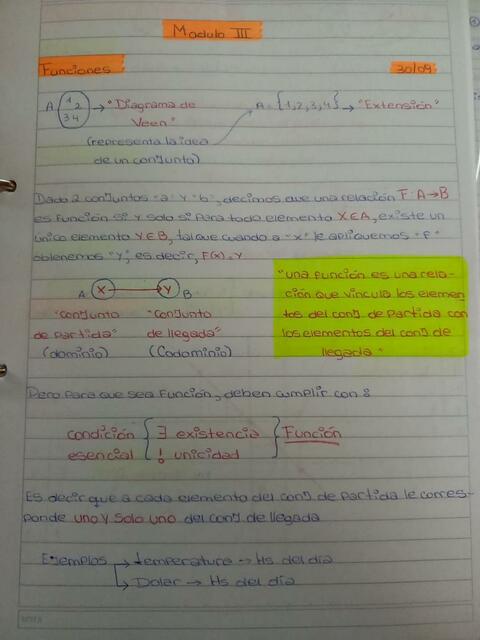 Modulo III
Funciones 30/09
A 1 2 3 4 → "Diagrama de Veen" A = {1,2,3,4} → "Extensión"
(representa la idea
de un conjunto)
Dado 2 conjuntos "a" y "b", decimos que una relación F: A → B
es función si y solo si para todo elemento X∈A, existe un
unico elemento Y∈B, tal que cuando a "x" le apliquemos "f"
obtenemos "y", es decir, F(x)=Y
A X → Y B
"conjunto "conjunto
de partida" de llegada"
(dominio) (Codominio)
"una función es una rela-
ción que vincula los elemen
tos del conj de partida con
los elementos del conj de
llegada"
Pero para que sea Función, deben cumplir con:
condición { ∃ existencia } Función
esencial { ! unicidad }
Es decir que a cada elemento del conj de partida le corres-
ponde uno y solo uno del conj de llegada
Ejemplos → temperatura → Hs del día
↳ Dolar → Hs del día